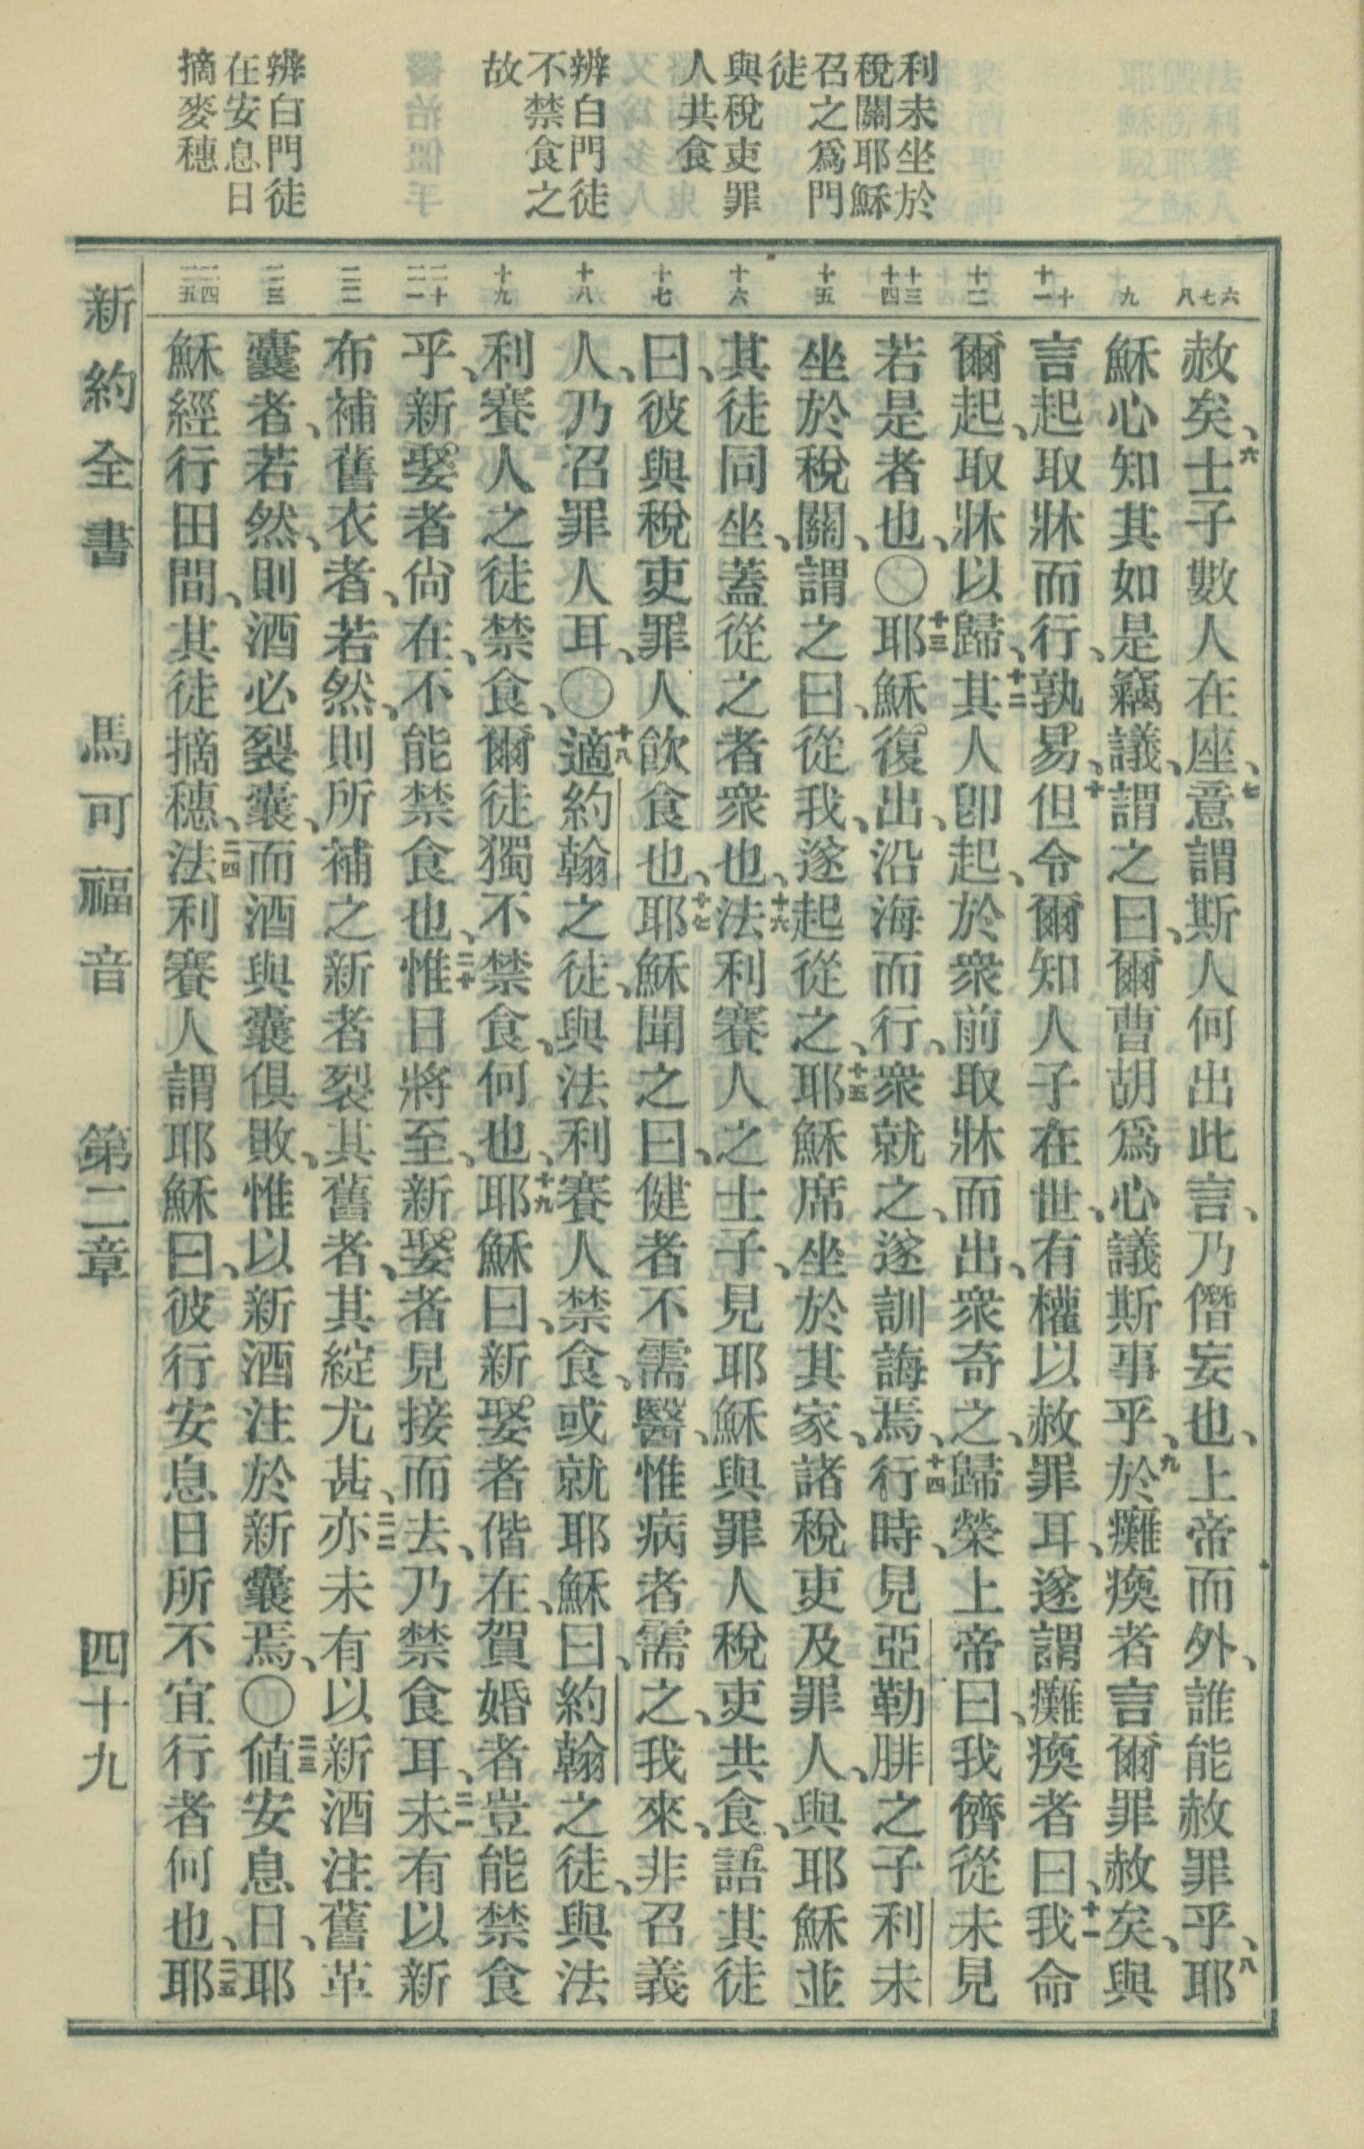 利未坐於
稅關耶穌
召之爲門
徒
與稅吏罪
人共食
辨白門徒
不禁食之
故
辨白門徒
在安息日
摘麥穗
六 七 八
九
十 十一
十二
十三 十四
十五
十六
十七
十八
十九
二十 二一
二二
二三
二四 二五
赦矣、六士子數人在座、七意謂斯人何出此言、乃僭妄也、上帝而外、誰能赦罪乎、八耶
穌心知其如是竊議、謂之曰、爾曹胡爲心議斯事乎、九於癱瘓者言爾罪赦矣、與
言起取牀而行、孰易、十但令爾知人子在世、有權以赦罪耳、遂謂癱瘓者曰、十一我命
爾起、取牀以歸、十二其人卽起、於衆前取牀而出、衆奇之、歸榮上帝曰、我儕從未見
若是者也、〇十三耶穌復出、沿海而行、衆就之、遂訓誨焉、十四行時、見亞勒腓之子利未
坐於稅關、謂之曰、從我、遂起從之、十五耶穌席坐於其家、諸稅吏及罪人、與耶穌並
其徒同坐、蓋從之者衆也、十六法利賽人之士子、見耶穌與罪人稅吏共食、語其徒
曰、彼與稅吏罪人飮食也、十七耶穌聞之曰、健者不需醫、惟病者需之、我來、非召義
人、乃召罪人耳、〇十八適約翰之徒、與法利賽人禁食、或就耶穌曰、約翰之徒、與法
利賽人之徒禁食、爾徒獨不禁食、何也、十九耶穌曰、新娶者偕在、賀婚者豈能禁食
乎、新娶者尙在、不能禁食也、二十惟日將至、新娶者見接而去、乃禁食耳、二一未有以新
布補舊衣者、若然、則所補之新者裂其舊者、其綻尤甚、二二亦未有以新酒注舊革
囊者、若然、則酒必裂囊、而酒與囊俱敗、惟以新酒注於新囊焉、〇二三値安息日、耶
穌經行田間、其徒摘穗、二四法利賽人謂耶穌曰、彼行安息日所不宜行者何也、二五耶
新約全書　馬可福音　第二章　四十九